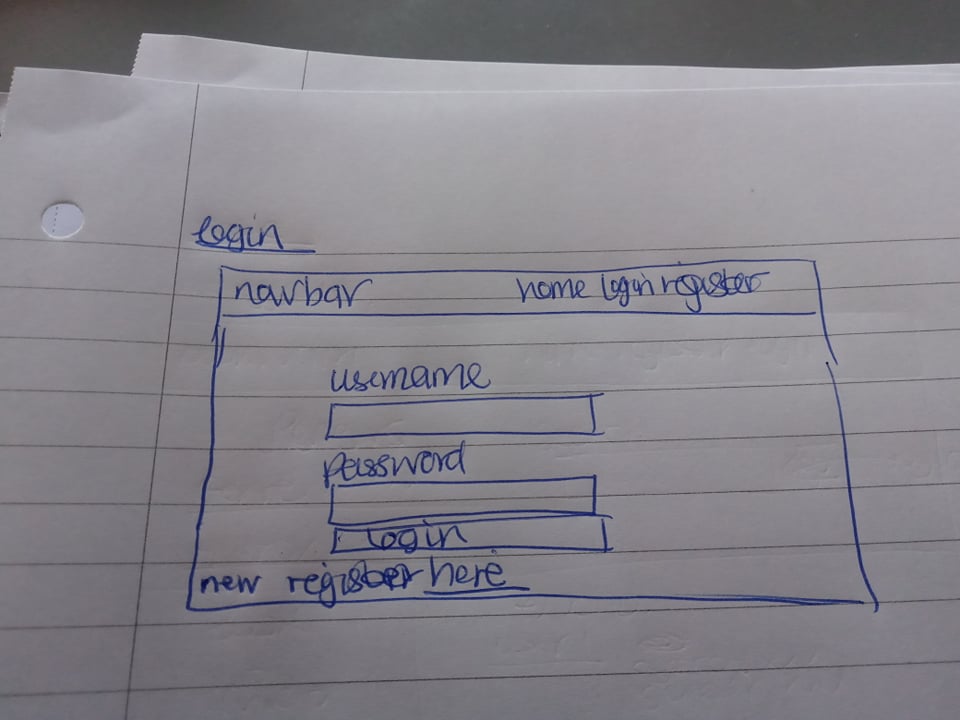 login
navbar home login register
username
password
login
new register here